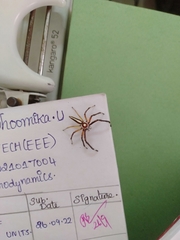 kangaro® 52
hoomika.U
TECH(EEE)
21017004
modynamics.
Sub:
Date
Signature.
UNITS
26-09-22